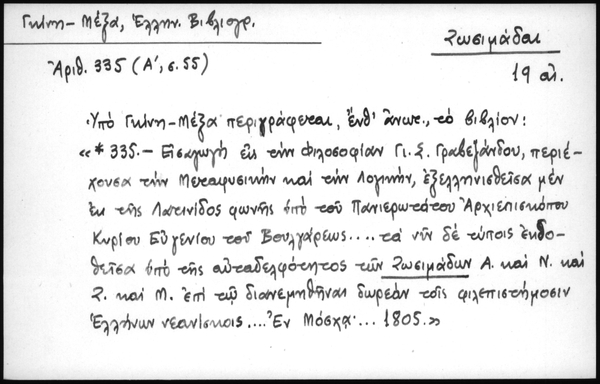 Γκίνη-Μέξα, Ἑλλην. Βιβλιογρ.
Ζωσιμάδαι
Ἀριθ. 335 (Α', σ. 55)
19 αἰ.
Ὑπό Γκίνη-Μέξα περιγράφεται, ἔνθ' ἄνωτ., τό βιβλίον:
«* 335.- Εἰσαγωγή εἰς τήν Φιλοσοφίαν Γι. Σ. Γραβεζάνδου, περιέ-
χουσα τήν Μεταφυσικήν καί τήν Λογικήν, ἐξελληνισθεῖσα μέν
ἐκ τῆς Λατινίδος φωνῆς ὑπό τοῦ Πανιερωτάτου Ἀρχιεπισκόπου
Κυρίου Εὐγενίου τοῦ Βουλγάρεως.... τά νῦν δέ τύποις ἐκδο-
θεῖσα ὑπό τῆς αὐταδελφότητος τῶν Ζωσιμάδων Α. καί Ν. καί
Ζ. καί Μ. ἐπί τῷ διανεμηθῆναι δωρεάν τοῖς φιλεπιστήμοσιν
Ἑλλήνων νεανίσκοις.... Ἐν Μόσχᾳ... 1805.»